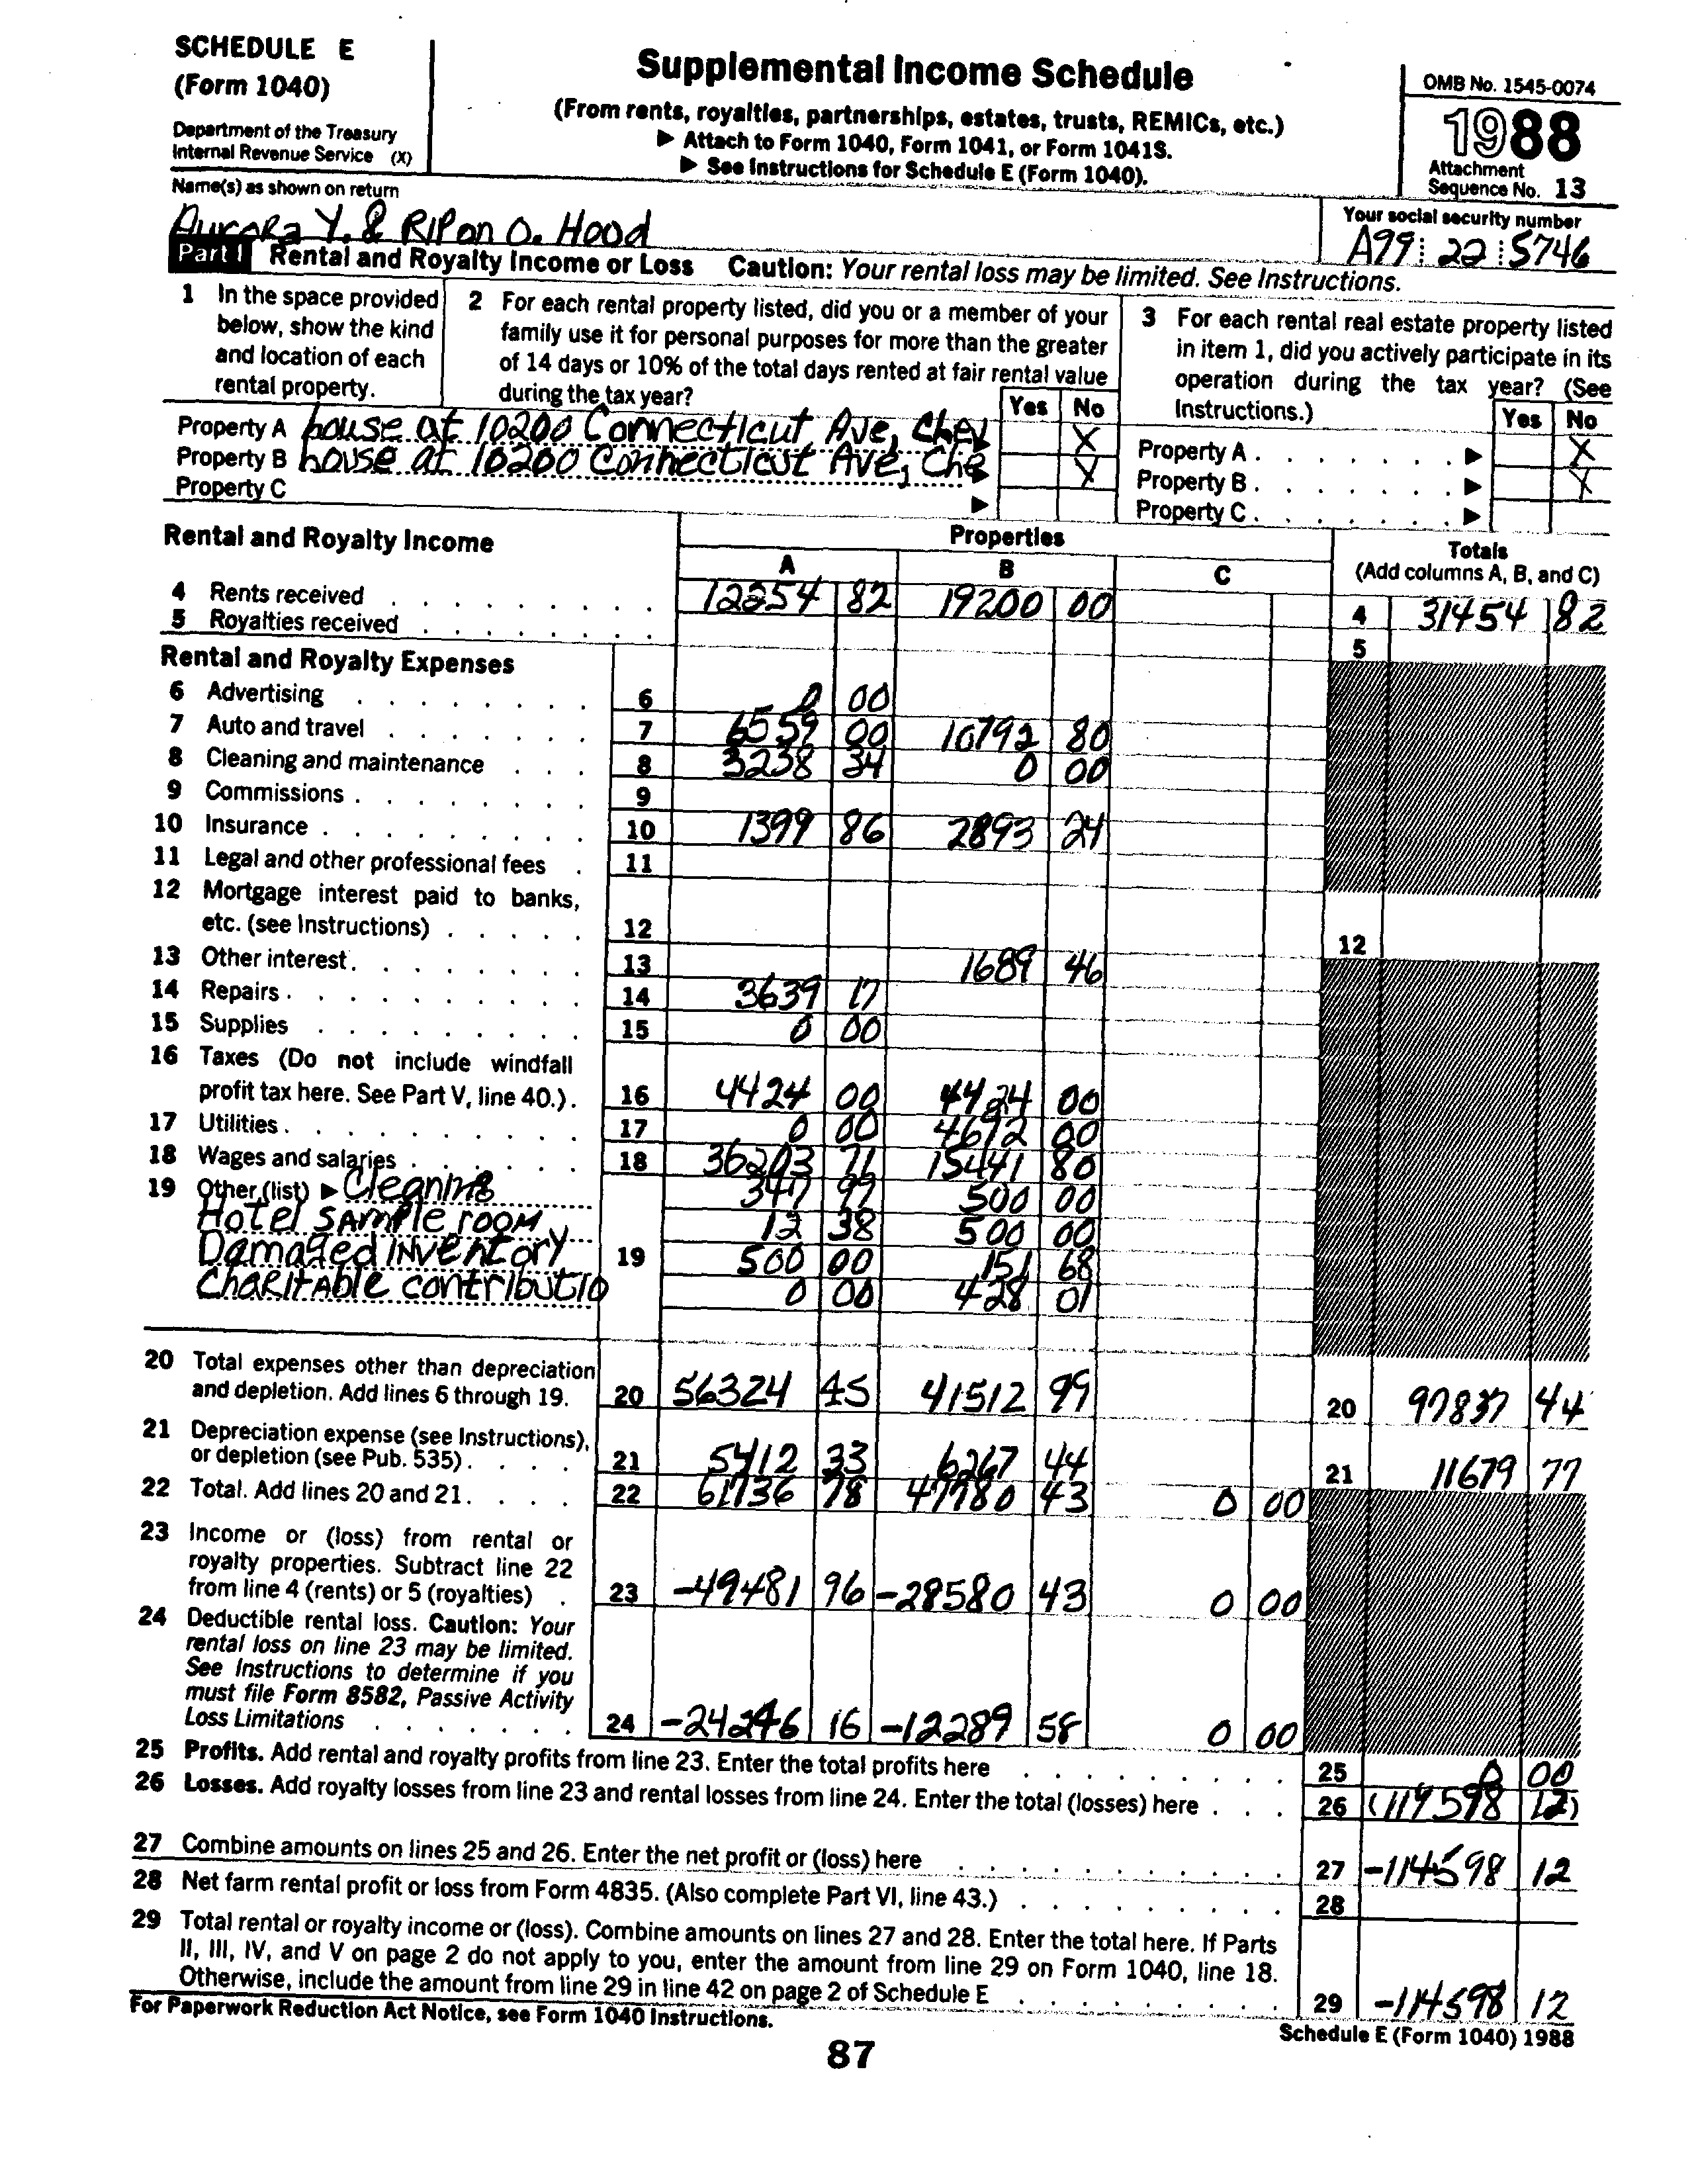 SCHEDULE E
(Form 1040)
Department of the Treasury
Internal Revenue Service (X)
Supplemental Income Schedule
(From rents, royalties, partnerships, estates, trusts, REMICs, etc.)
▶ Attach to Form 1040, Form 1041, or Form 1041S.
▶ See Instructions for Schedule E (Form 1040).
OMB No. 1545-0074
1988
Attachment
Sequence No. 13
Name(s) as shown on return
Aurora Y. & Ripon O. Hood
Your social security number
A99 22 5746
Part I Rental and Royalty Income or Loss Caution: Your rental loss may be limited. See Instructions.
1 In the space provided
below, show the kind
and location of each
rental property.
2 For each rental property listed, did you or a member of your
family use it for personal purposes for more than the greater
of 14 days or 10% of the total days rented at fair rental value
during the tax year?
Yes No
3 For each rental real estate property listed
in item 1, did you actively participate in its
operation during the tax year? (See
Instructions.)
Yes No
Property A house at 10200 Connecticut Ave, Chev ▶ X
Property B house at 10200 Connecticut Ave, Che ▶ X
Property C ▶
Property A . . . . . . . ▶ X
Property B . . . . . . . ▶ X
Property C . . . . . . . ▶
Rental and Royalty Income
Properties
A B C
Totals
(Add columns A, B, and C)
4 Rents received 12254 82 19200 00 4 31454 82
5 Royalties received 5
Rental and Royalty Expenses
6 Advertising 6 0 00
7 Auto and travel 7 6559 00 10792 80
8 Cleaning and maintenance 8 3238 34 0 00
9 Commissions 9
10 Insurance 10 1399 86 2893 24
11 Legal and other professional fees 11
12 Mortgage interest paid to banks,
etc. (see Instructions) 12 12
13 Other interest 13 1689 46
14 Repairs 14 3639 17
15 Supplies 15 0 00
16 Taxes (Do not include windfall
profit tax here. See Part V, line 40.) 16 4424 00 4424 00
17 Utilities 17 0 00 4692 00
18 Wages and salaries 18 36203 71 15441 80
19 Other (list) ▶ Cleaning 347 97 500 00
Hotel sample room 12 38 500 00
Damaged inventory 19 500 00 151 68
Charitable contributio 0 00 428 01
20 Total expenses other than depreciation
and depletion. Add lines 6 through 19. 20 56324 45 41512 99 20 97837 44
21 Depreciation expense (see Instructions),
or depletion (see Pub. 535) 21 5412 33 6267 44 21 11679 77
22 Total. Add lines 20 and 21 22 61736 78 47780 43 0 00
23 Income or (loss) from rental or
royalty properties. Subtract line 22
from line 4 (rents) or 5 (royalties) 23 -49481 96 -28580 43 0 00
24 Deductible rental loss. Caution: Your
rental loss on line 23 may be limited.
See Instructions to determine if you
must file Form 8582, Passive Activity
Loss Limitations 24 -24246 16 -12289 58 0 00
25 Profits. Add rental and royalty profits from line 23. Enter the total profits here 25 0 00
26 Losses. Add royalty losses from line 23 and rental losses from line 24. Enter the total (losses) here 26 (114598 12)
27 Combine amounts on lines 25 and 26. Enter the net profit or (loss) here 27 -114598 12
28 Net farm rental profit or loss from Form 4835. (Also complete Part VI, line 43.) 28
29 Total rental or royalty income or (loss). Combine amounts on lines 27 and 28. Enter the total here. If Parts
II, III, IV, and V on page 2 do not apply to you, enter the amount from line 29 on Form 1040, line 18.
Otherwise, include the amount from line 29 in line 42 on page 2 of Schedule E 29 -114598 12
For Paperwork Reduction Act Notice, see Form 1040 Instructions.
Schedule E (Form 1040) 1988
87